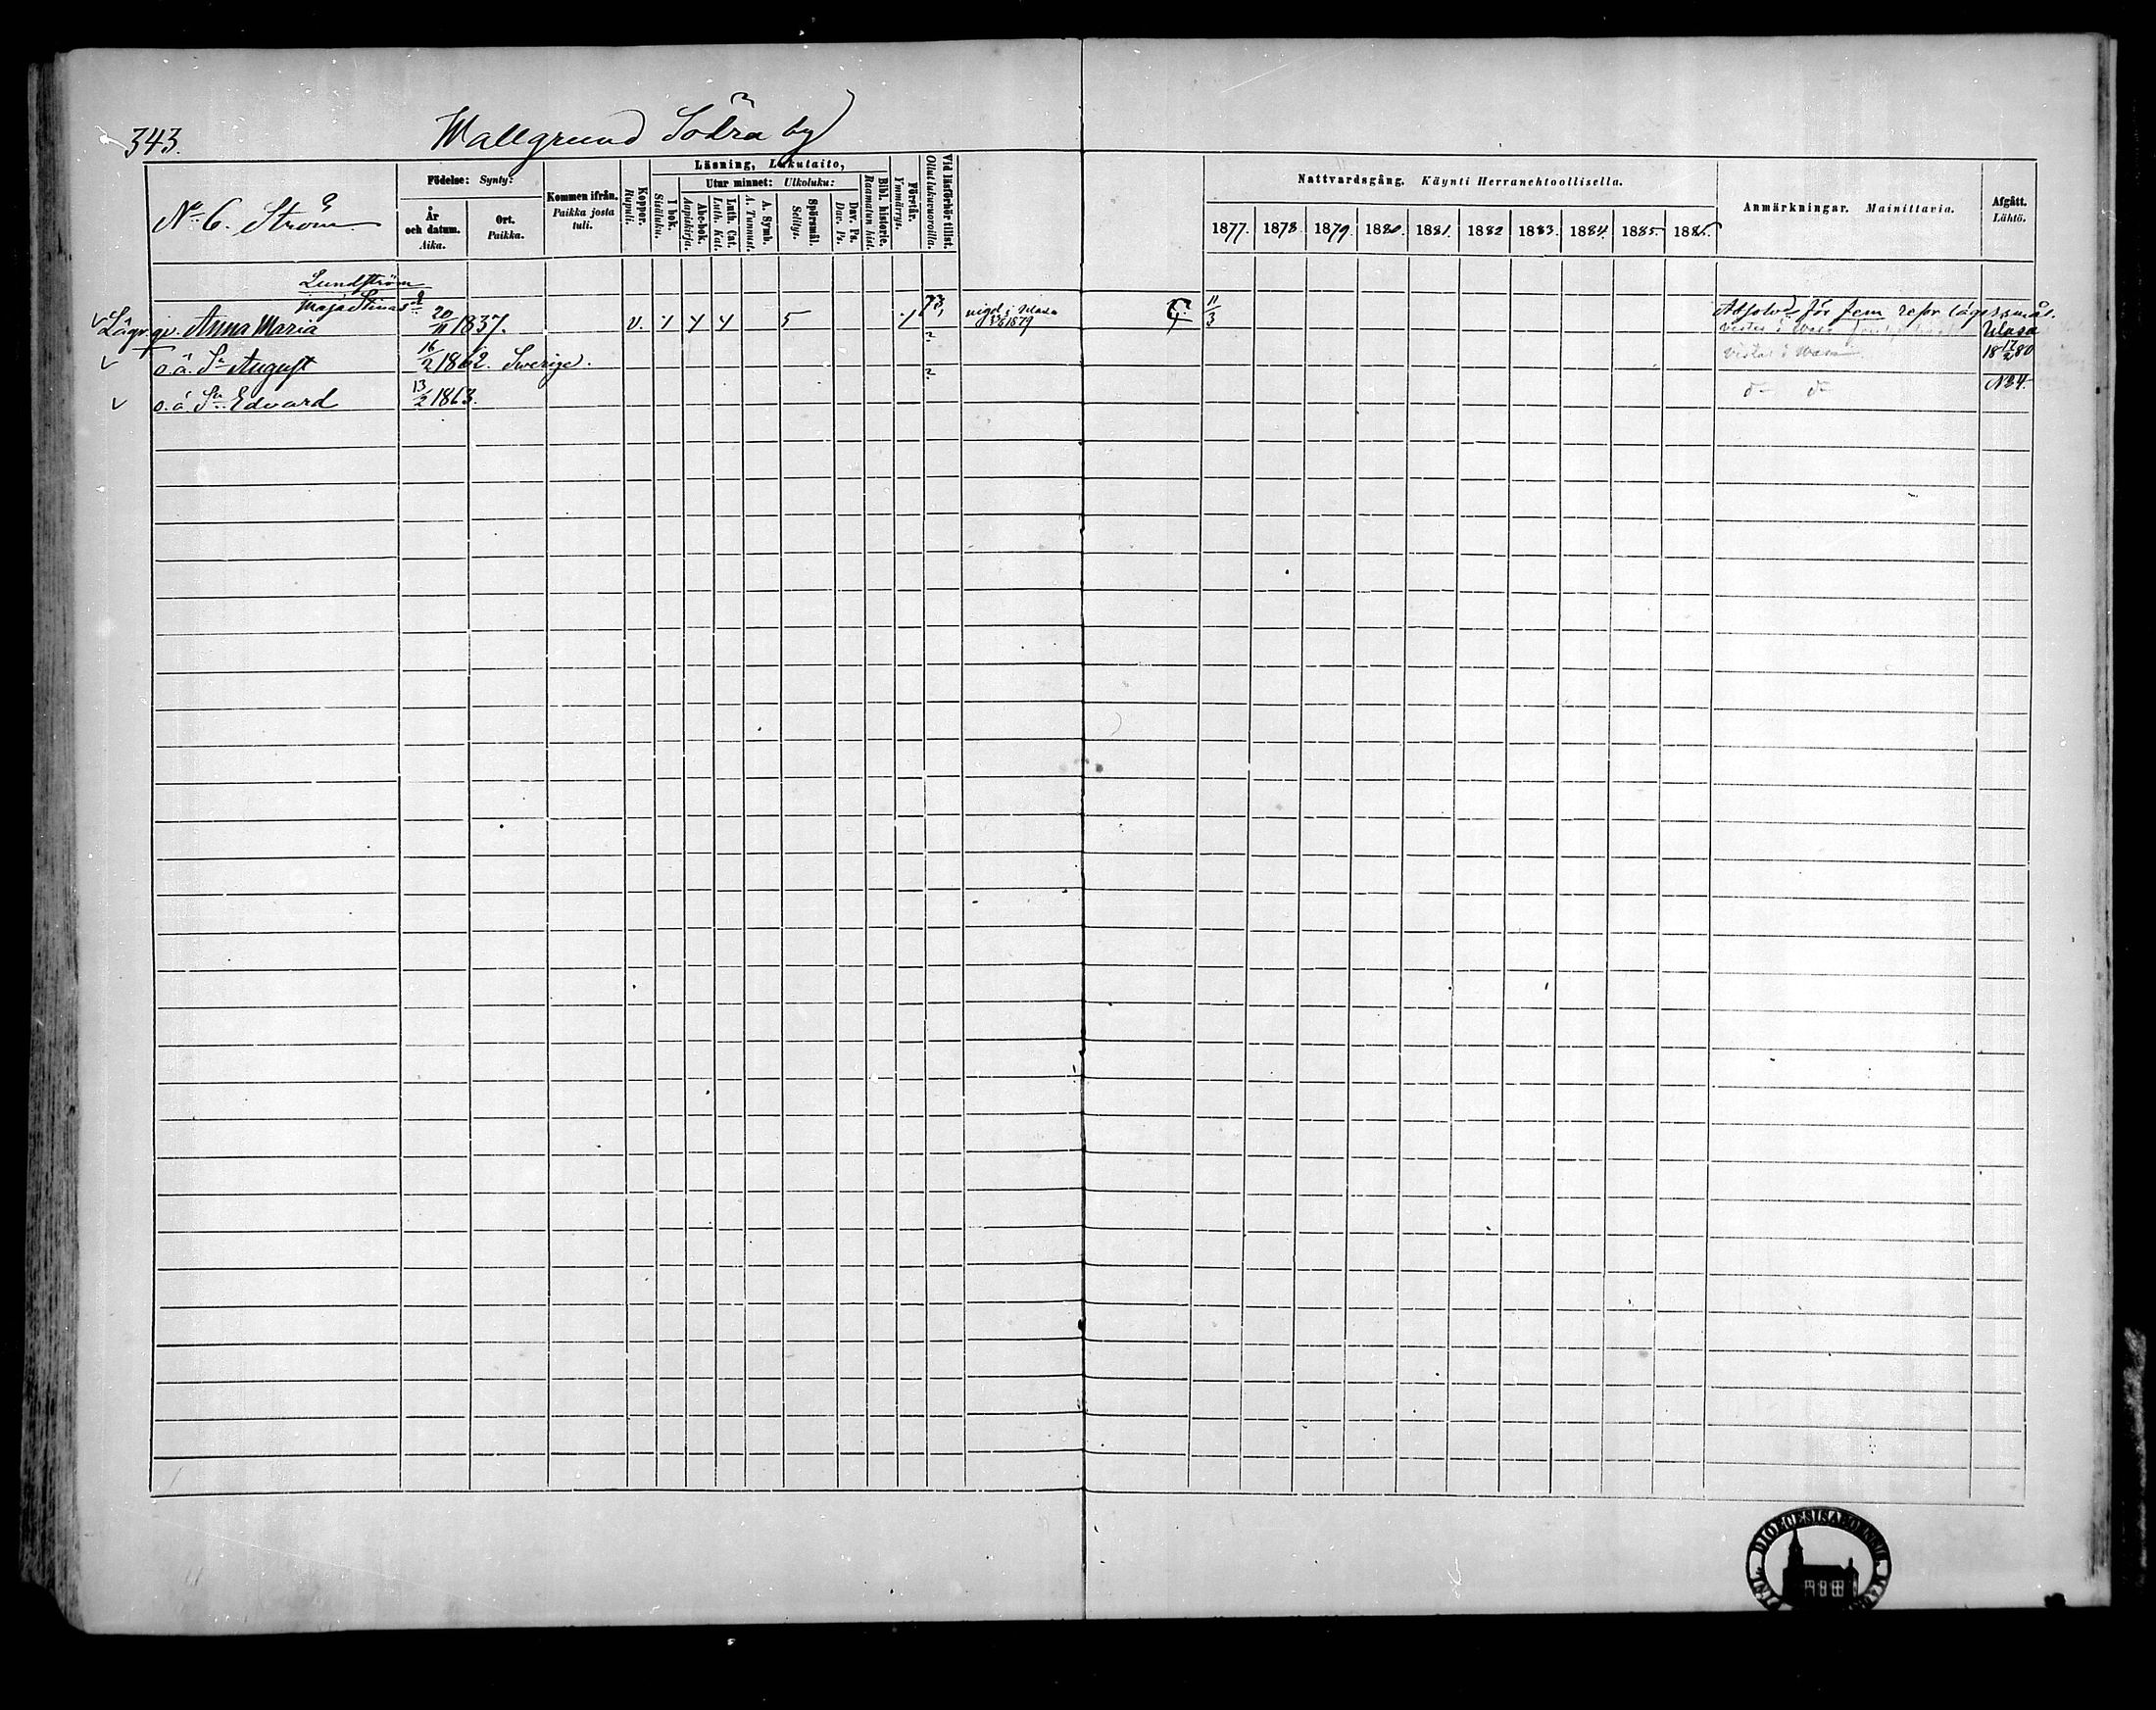 343.
Wallgrund Södra by
No. 6. Ström.
Födelse: Synty:
År och datum. Aika.
Ort. Paikka.
Kommen ifrån. Paikka josta tuli.
Koppor. Rupuli.
Läsning, Lukutaito,
I bok. Sisäluku.
Utur minnet: Ulkoluku:
Abc-bok. Aapiskirja.
Luth. Cat. Luth. Kat.
A. Symb. A. Tunnust.
Spörsmål. Selitys.
Dav. Ps. Dav. Ps.
Bibl. historie. Raamatun hist.
Förstår. Ymmärrys.
Vid läsförhör tillst. Ollut lukuvuoroilla.
Nattvardsgång. Käynti Herranehtoollisella.
1877. 1878. 1879. 1880. 1881. 1882 1883. 1884. 1885. 1886.
Anmärkningar. Mainittavia.
Afgått. Lähtö.
Lundström
Maja Stinas
Lägr. qv. Anna Maria 20/11 1837. v. 5 73, vigd i Wasa 1879 11/3 Absolv. för fem repr. lägersmål. Wasa
o.ä. Sn August 16/2 1862. Sverige. 2 Vistas i Wasa 18 17/2 80
o.ä. Sn Edvard 13/2 1863. 2. d- d- N 34.
DIOECESIS ABOENSIS